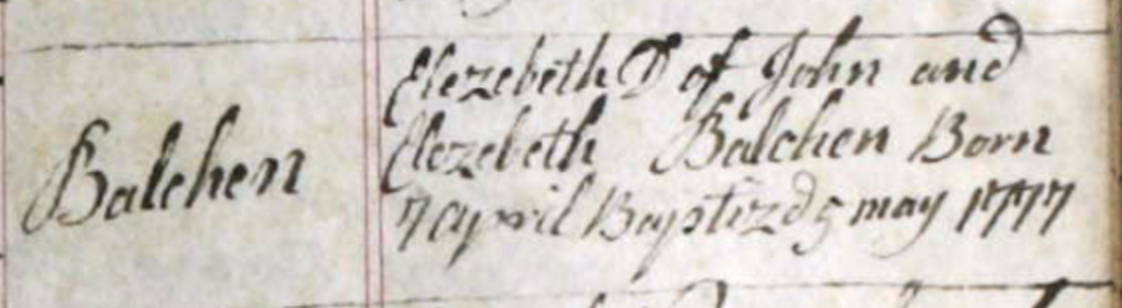 Balchen
Elezebeth D of John and
Elezebeth Balchen Born
7 april Baptizd 5 may 1777